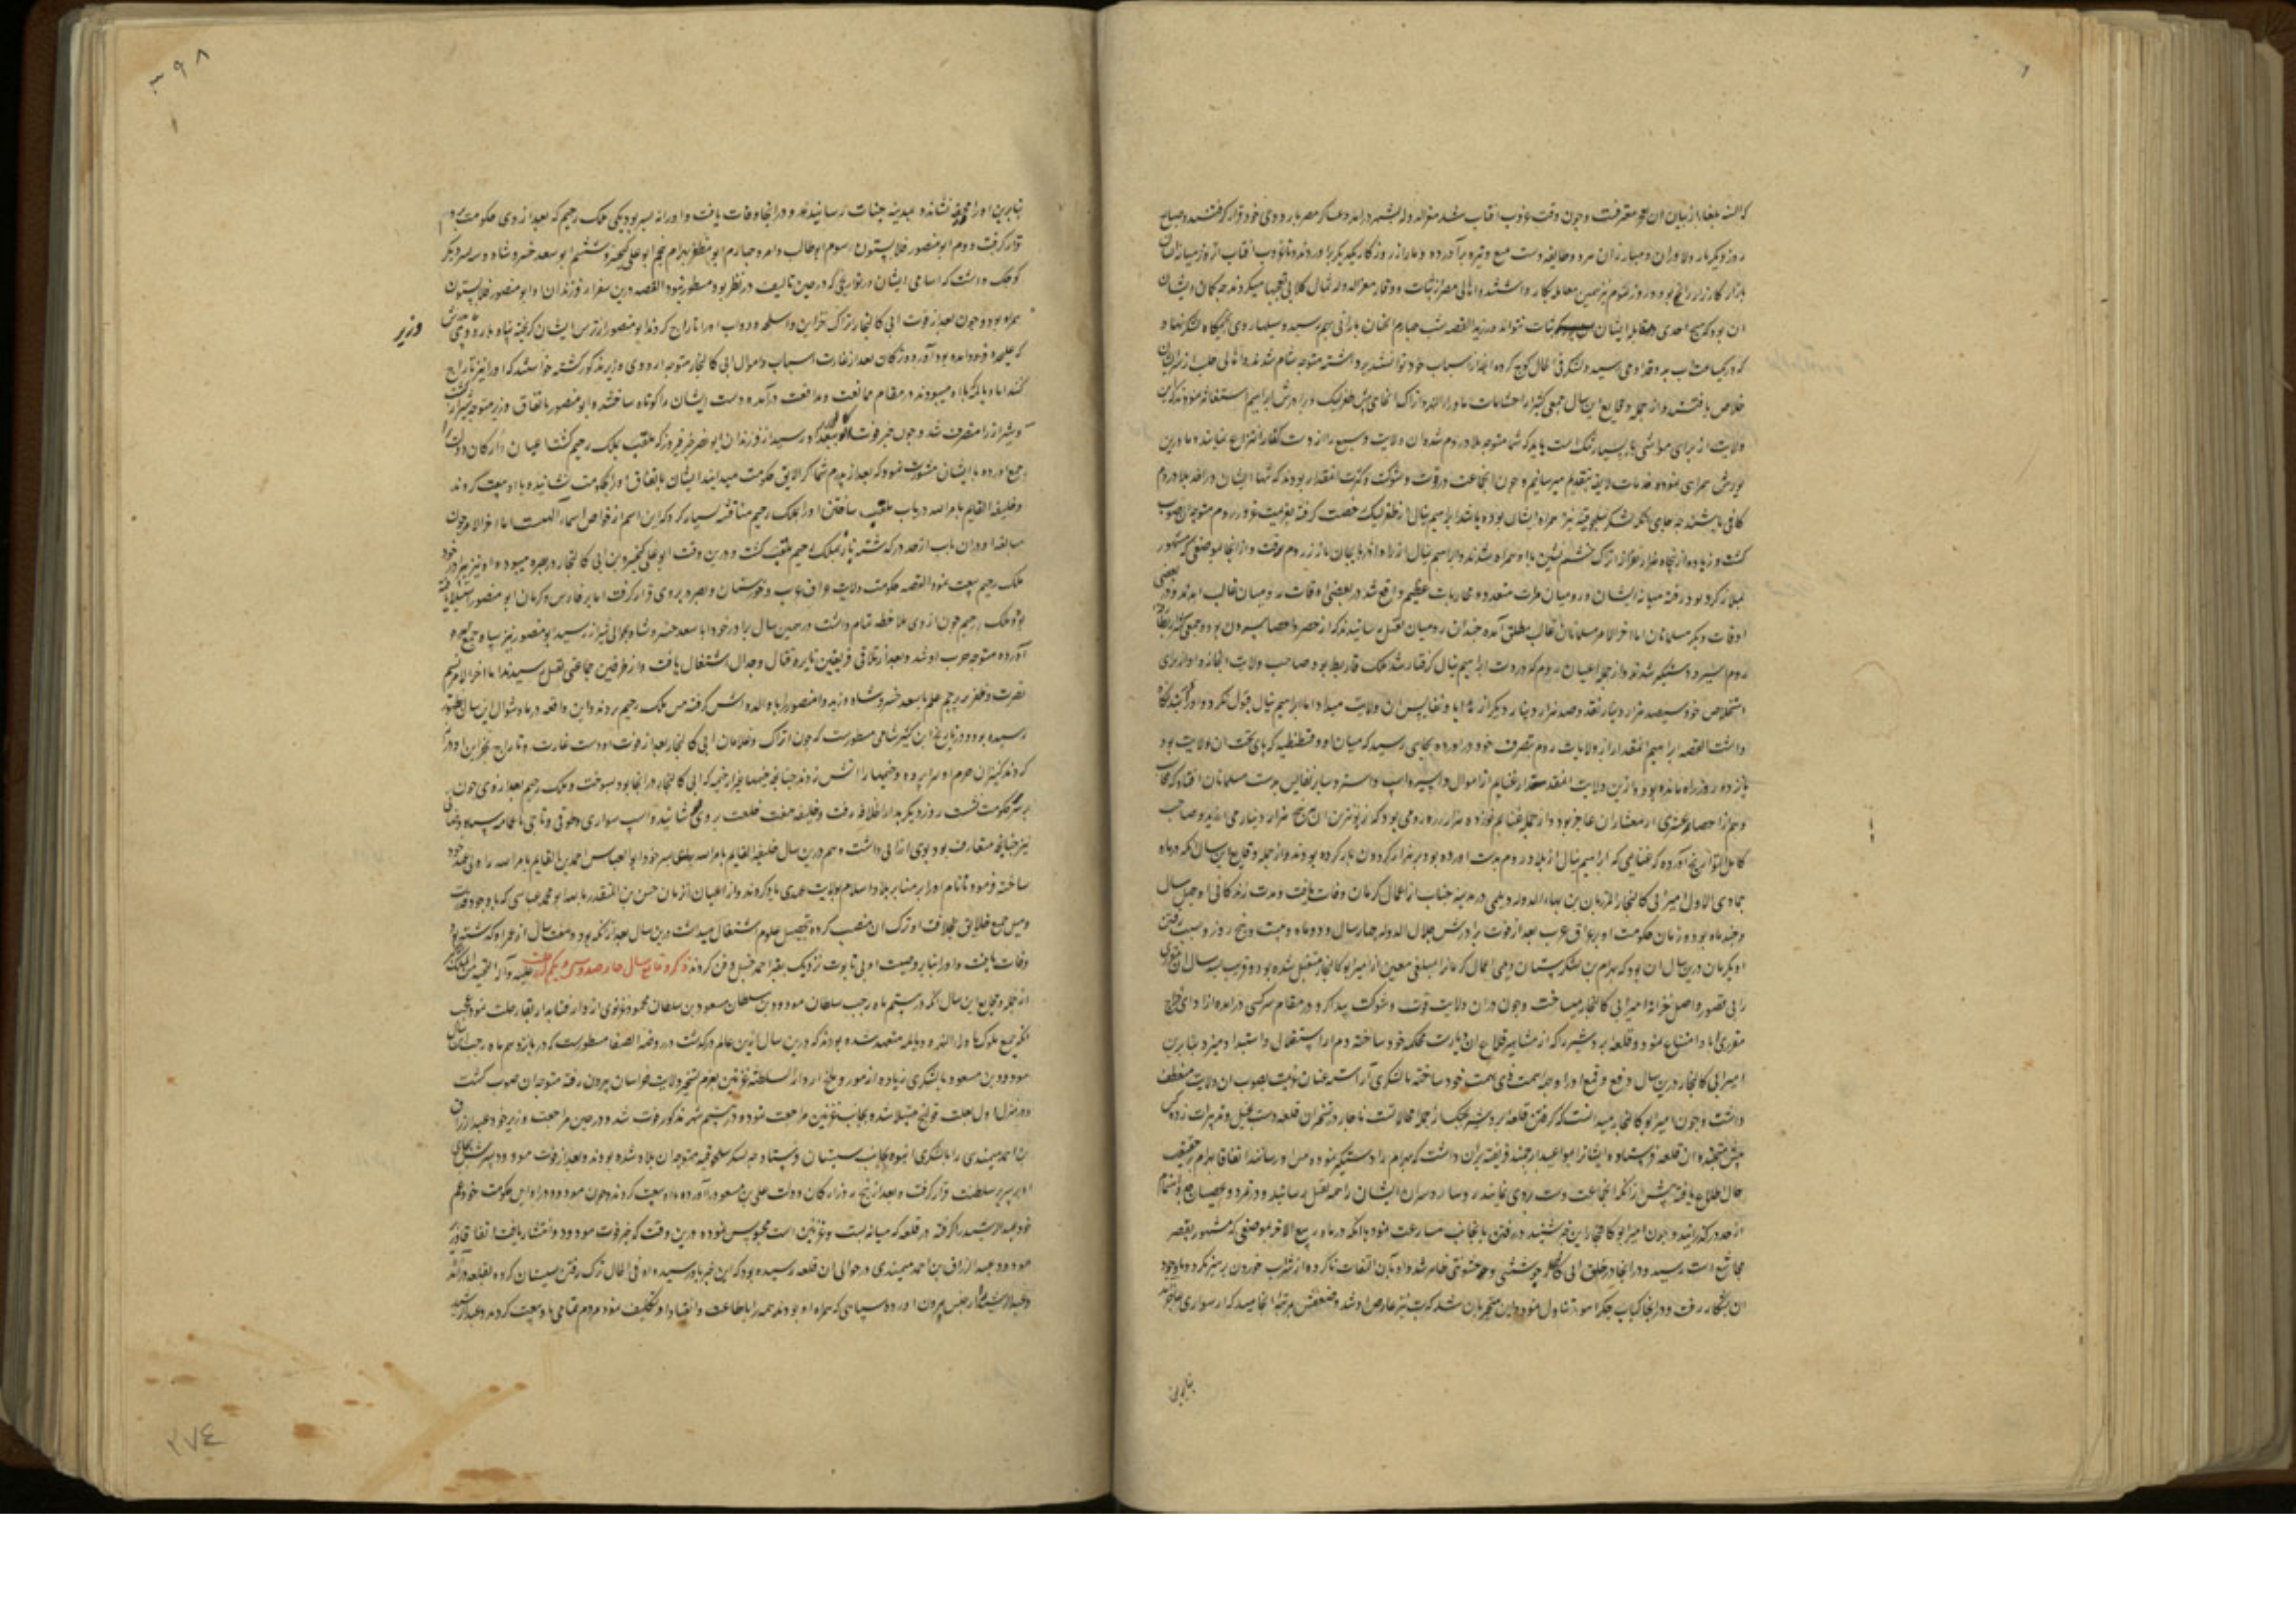 که السنه بلغا از بیان آن معترفت و چون وقت غروب آفتاب شد معزالدوله بشهر درآمد و عساکر مصر باردوی خود قرار گرفتند و صباح
روز دیگر باز دلاوران و مبارزان مرد و طایفه دست تیغ و تیر برآورده دمار از روزگار یکدیگر برآوردند و تا غروب آفتاب از روز
بازار کارزار رایج بود و در روز سوم نیز همین معامله بکار داشتند و اهالی مصر از ثبات و وقار معزالدوله ثمال کلابی تعجبها میکردند چه کمان ایشان
آن بود که هیچ احدی در مقابل ایشان ثبات نتواند ورزید القصه شب چهارم آنچنان بارانی بهم رسید و سیلها روی بخیمگاه لشکر نهاد
که در یکساعت آب به قد آدمی رسید و لشکر فی الحال کوچ کرده آنچه از اسباب خود توانستند برداشته متوجه شام شدند و اهالی حلب از شر ایشان
خلاص یافتند و از جمله وقایع این سال جمعی کثیر از احتشامات ماوراء النهر و اتراک آنجا پیش طغرلبیک و برادرش ابراهیم استغاثه نمودند که این
ولایت از برای مواشی ما بسیار تنگ است باید که شما متوجه بلاد روم شده آن ولایت وسیع را از دست کفار انتزاع نمایند و ما درین
یورش همراهی نموده خدمات لایقه بتقدیم میرسانیم و چون آنجماعت در قوت و شوکت و کثرت آنمقدار بودند که تنها ایشان در اخذ بلاد روم
کافی باشند چه جای آنکه لشکر سلجوقیه نیز همراه ایشان بوده باشد ابراهیم ینال از طغرلبیک رخصت گرفته بعزیمت غزو روم متوجه آن صوب
گشت و زیاده از پنجاه هزار اتراک حشم نشین با او همراه شدند و ابراهیم ینال از راه آذربایجان باززن روم رفت و از آنجا بموضعی که مشهور
بملازکرد بود رفته میانه ایشان و رومیان بکرت متعدده محاربات عظیم واقع شد در بعضی اوقات رومیان غالب آمدند و در بعضی
اوقات دیگر مسلمانان اما آخر الامر مسلمانان غالب مطلق آمده چندان رومیان بقتل رسانیدند که از حصر و احصا بیرون بود و جمعی کثیر از بطارقه
روم اسیر و دستگیر شدند و از جمله اعیان روم که در دست ابراهیم ینال گرفتار شد ملک قاریط بود صاحب ولایت انجازه او از برای
استخلاص خود سیصد هزار دینار نقد و صد هزار دینار دیگر از هدایا و نفایس آن ولایت میداد اما ابراهیم ینال قبول نکرد و او را نگاه
داشت القصه ابراهیم آنمقدار از ولایات روم بتصرف خود درآورده بجایی رسید که میان او و قسطنطنیه که پای تخت آن ولایت بود
پانزده روزه راه مانده بود باز ازین ولایت آنمقدار غنایم از اموال و اسیر و اسب و استر و سایر نفایس بدست مسلمانان افتاد که محاسب
وهم از احصاء عشری از معشار آن عاجز بود و از جمله غنایم نوزده هزار زره رومی بود که زبون ترین آن پنج هزار دینار می ارزید و صاحب
کامل التواریخ آورده که غنایمی که ابراهیم ینال از بلاد روم بدست آورده بود بر ده هزار گردون بار کرده بودند و از جمله وقایع این سال آنکه در ماه
جمادی الاول امیر ابی کالنجار المرزبان بن بهاء الدوله دیلمی در مدینه جناب از اعمال کرمان وفات یافت و مدت زندگانی او چهل سال
و چند ماه بود و زمان حکومت او بر عراق عرب بعد از فوت برادرش جلال الدوله چهار سال و دو ماه و بیست و پنج روز و سبب رفتن
او بکرمان درین سال آن بود که بهرام بن لشکرستان بر اعمال کرمان مبلغی معین از امیر ابو کالنجار متقبل شده بود و قریب بسه سال آن
را بی قصور واصل خزانه امیر ابی کالنجار میساخت و چون در آن ولایت قوت و شوکت پیدا کرد در مقام سرکشی درآمده از ادای خراج
مقرری ابا و امتناع نمود و قلعه بردشیر را که از مشاهیر قلاع آن دیار است محکم خود ساخته دم از استقلال و استبداد میزد بنابرین
امیر ابی کالنجار درین سال دفع و رفع او را وجه همت خود ساخته با لشکری آراسته عنان عزیمت بصوب آن ولایت منعطف
داشت و چون امیر ابو کالنجار میدانست که گرفتن قلعه بردشیر بجنگ از جمله محالاتست ناچار در تسخیر آن قلعه دست بحیل و تدبیرات زده کس
پیش متحفظه آن قلعه فرستاده و ایشانرا بمواعید ارجمند فریفته بر آن داشت که بهرام را دستگیر نموده پیش او رسانند اتفاقا بهرام بر حقیقت
حال اطلاع یافته پیش از آنکه آنجماعت دست بروی نمایند رؤسا و سران ایشان را همه بقتل رسانید و در تمرد و عصیان
از حد درگذرانید و چون امیر ابو کالنجار این خبر شنید در رفتن بآنجانب مسارعت نمود تا آنکه در ماه ربیع الاخر بموضعی که مشهور بقصر
مجاشع است رسید و در آنجا در حلق ابی کالنجار جوششی و خشونتی ظاهر شد و او بآن التفات ناکرده از شراب خوردن پرهیز نکرد و باوجود
آن بشکار رفت و در آنجا کباب جگر آهو تناول نمود و این منجر بآن شد که تب نیز عارض او شد و ضعفش بمرتبه انجامید که از سواری عاجز شد
بنابرین
۳۹۸
بنابرین او را در محفه نشانده بمدینه جناب رسانیدند و در آنجا وفات یافت و او را نه پسر بود یکی ملک رحیم که بعد از وی حکومت بر وی
قرار گرفت دوم ابو منصور فلاستون سوم ابو طالب کامرو چهارم ابو مظفر بهرام پنجم ابو علی کیخسرو ششم ابو سعد خسرو شاه و سه پسر دیگر
کوچک داشت که اسامی ایشان در تواریخی که در حین تالیف در نظر بود مسطور نبود القصه درین سفر از فرزندان او ابو منصور فلاستون
همراه بود و چون بعد از فوت ابی کالنجار اتراک خزاین و اسلحه و دواب او را تاراج کردند ابو منصور از ترس ایشان گریخته پناه باردوی
وزیر
که علیحده فرود آمده بود آورد و ترکان بعد از غارت اسباب و اموال ابی کالنجار متوجه اردوی وزیر مذکور گشته خواستند که او را نیز تاراج
کنند اما دیالمه که با او میبودند در مقام ممانعت و مدافعت درآمده دست ایشان را کوتاه ساختند و ابو منصور باتفاق وزیر متوجه شیراز گشت
و شیراز را متصرف شد و چون خبر فوت ابو کالنجار ببغداد رسید از فرزندان ابو نصر خسرو فیروز که ملقب بملک رحیم گشت اعیان و ارکان دولت را
جمع آورده با ایشان مشورت نمود که بعد از پدرم شما کرا لایق حکومت میدانید ایشان باتفاق او را بحکومت نشانیده با او بیعت کردند
و خلیفه القایم بامرالله در باب ملقب ساختن او را بملک رحیم مناقشه بسیار کرد که این اسم از خواص اسماء الهیست اما آخر الامر چون
مبالغه او در آن باب از حد درگذشت ناچار بملک رحیم ملقب گشت و درین وقت ابو علی کیخسرو بن ابی کالنجار در جیره میبود و او نیز با برادر خود
ملک رحیم بیعت نمود القصه حکومت ولایت عراق عرب و خوزستان و بصره بر وی قرار گرفت اما بر فارس و کرمان ابو منصور استیلا یافته
بود و ملک رحیم چون از وی ملاحظه تمام داشت در همین سال برادر خود ابا سعد خسرو شاه بحوالی شیراز رسید ابو منصور نیز سپاه جمع
آورده متوجه حرب او شد و بعد از تلاقی فریقین نایره قتال و جدال اشتعال یافت و از طرفین جماعتی بقتل رسیدند اما آخر الامر نسیم
نصرت و ظفر بر پرچم علم ابا سعد خسرو شاه وزید و ابو منصور را با والده اش گرفته پیش ملک رحیم بردند و این واقعه در ماه شوال این سال بظهور
رسیده بود و در تاریخ ابن کثیر شامی مسطورست که چون اتراک و غلامان ابی کالنجار بعد از فوت او دست غارت و تاراج بخزاین او دراز
کردند کنیزان حرم او سراپرده و خیمها را آتش زدند چنانچه خیمها غیر از خیمه که ابی کالنجار در آنجا بود بسوخت و ملک رحیم بعد از وی چون
بر سریر حکومت نشست روز دیگر بدار الخلافه رفت و خلیفه هفت خلعت بر وی پوشانید و اسب سواری و طوقی و تاجی با عمامه سیاه
نیز چنانچه متعارف بود بوی ارزانی داشت و هم درین سال خلیفه القایم بامرالله پسر خود ابو العباس احمد بن القایم بامرالله را ولیعهد خود
ساخته فرمود تا نام او را بر منابر بلاد اسلام بولایت عهدی یاد کردند و از اعیان آن زمان حسن بن المقتدر بالله ابو محمد عباسی که باوجود قدرت
و میل جمیع خلایق بخلافت او ترک آن منصب کرده بتحصیل علوم اشتغال میداشت درین سال بعد از آنکه نود و هفت سال از عمر او گذشته بود
وفات یافت و او را بنا بر وصیت او بی تابوت نزدیک بقبر احمد حنبل دفن کردند ذکر وقایع سال چهارصد و سی و یکم از رحلت علیه و آله التحیة
از جمله وقایع این سال آنکه در بیستم ماه رجب سلطان مودود بن سلطان مسعود بن سلطان محمود غزنوی از دار فنا بدار بقا رحلت نمود عجب
آنکه جمیع ملوک ماوراء النهر و دیالمه متعهد شده بودند که درین سال ازین عالم درگذشت در روضه الصفا مسطورست که در یازدهم ماه رجب این سال
مودود بن مسعود با لشکری زیاده از مور و ملخ از دار السلطنه غزنین بعزم تسخیر ولایت خراسان بیرون رفته متوجه آن صوب گشت
در منزل اول بعلت قولنج مبتلا شد و بجانب غزنین مراجعت نموده در بیستم شهر مذکور فوت شد و در حین مراجعت وزیر خود عبد الرزاق
بن احمد میمندی را با لشکری انبوه بجانب سیستان فرستاد چه لشکر سلجوقیه متوجه آن بلاد شده بودند و بعد از فوت مودود پسرش بجای
او بر سریر سلطنت قرار گرفت و بعد از پنج روز ارکان دولت علی بن مسعود را آورده با او بیعت کردند و چون مودود در اوایل حکومت خود عم
خود عبد الرشید را گرفته در قلعه که میانه بست و غزنین است محبوس نموده درین وقت که خبر فوت مودود انتشار یافت اتفاقا وزیر
مودود عبد الرزاق بن احمد میمندی در حوالی آن قلعه رسیده بود که این خبر باو رسید و او فی الحال ترک رفتن سیستان کرده بقلعه درآمد
و عبد الرشید را از حبس بیرون آورده سپاهی که همراه او بودند همه را باطاعت و انقیاد او تکلیف نمود مردم تمامی باو بیعت کردند و عبد الرشید
۲۷٤